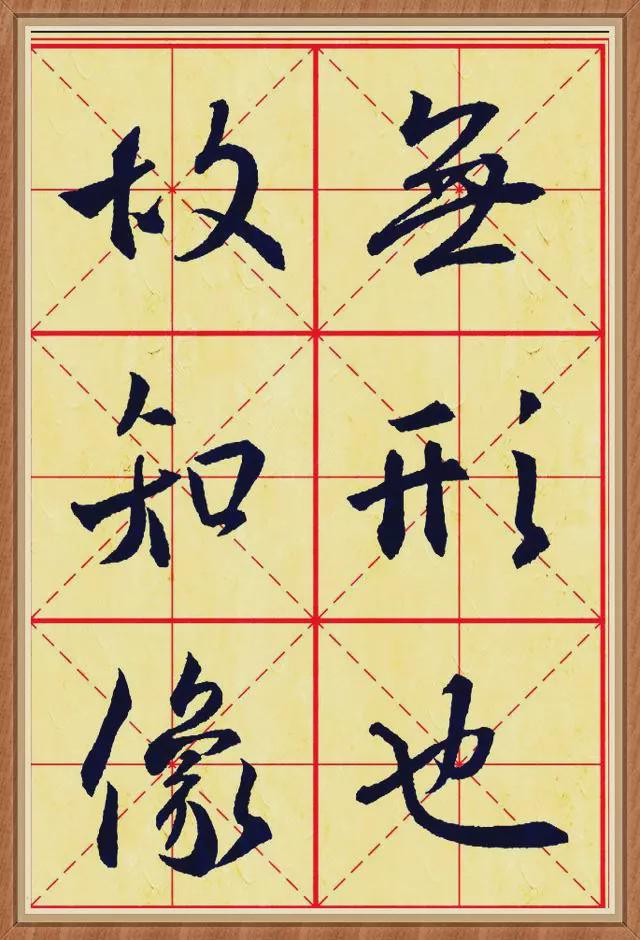 無形也
故知像